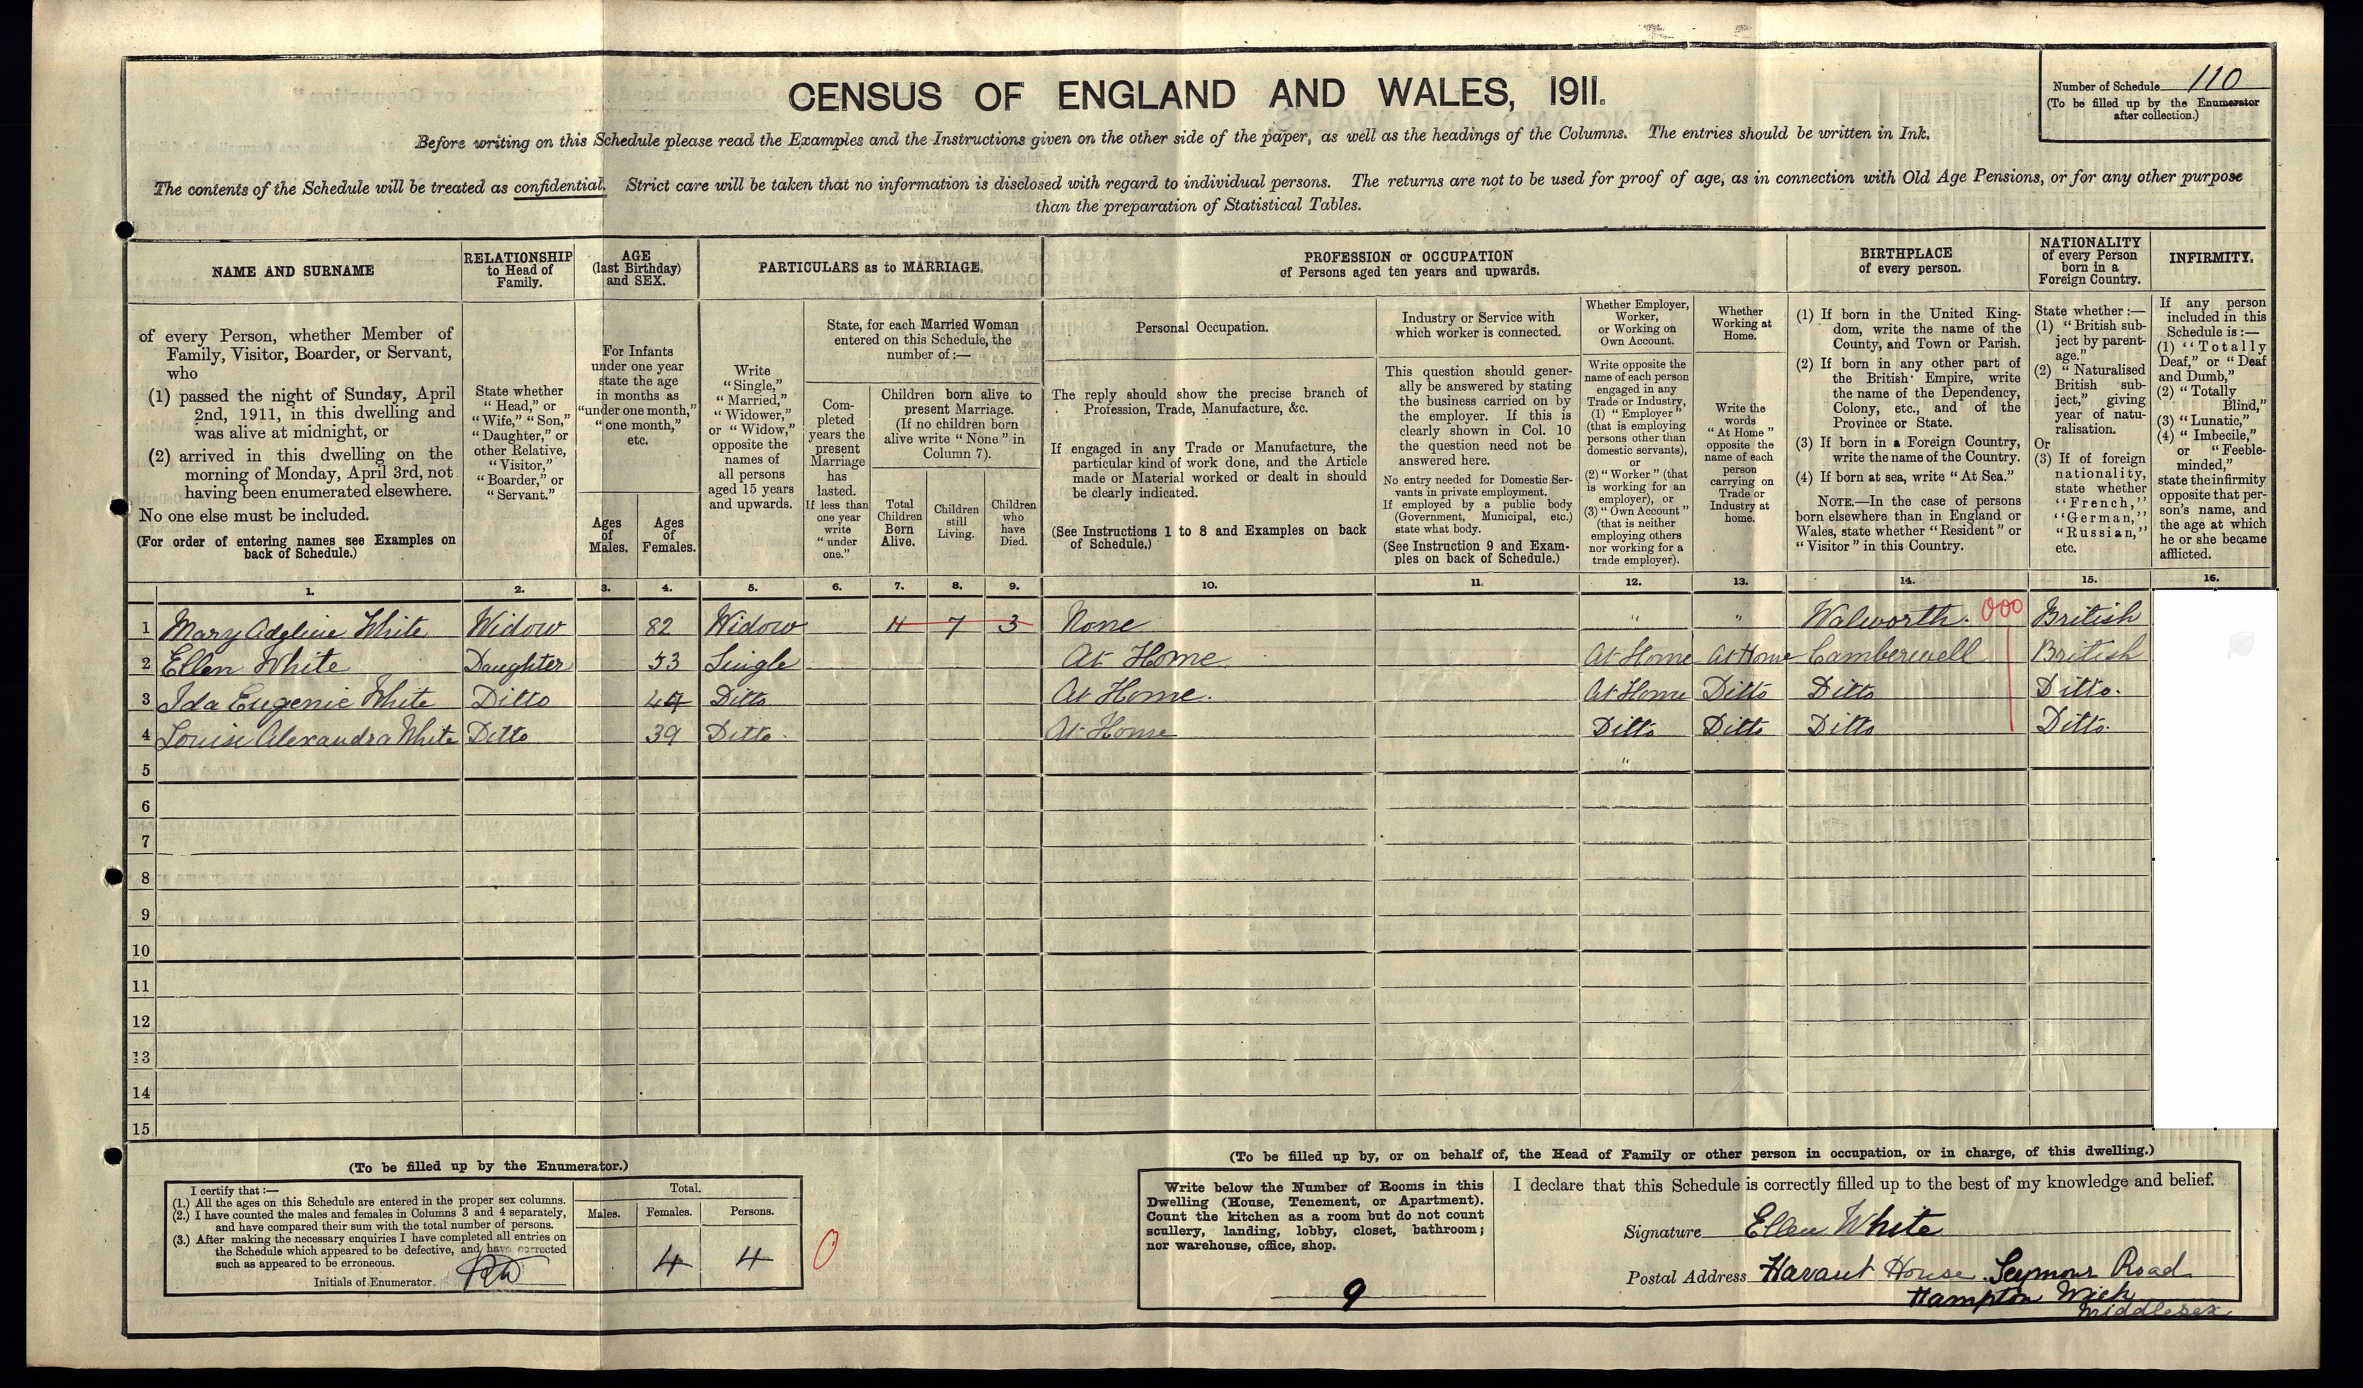 CENSUS OF ENGLAND AND WALES, 1911.
Number of Schedule 110
(To be filled up by the Enumerator
after collection.)
Before writing on this Schedule please read the Examples and the Instructions given on the other side of the paper, as well as the headings of the Columns. The entries should be written in Ink.
The contents of the Schedule will be treated as confidential. Strict care will be taken that no information is disclosed with regard to individual persons. The returns are not to be used for proof of age, as in connection with Old Age Pensions, or for any other purpose
than the preparation of Statistical Tables.
NAME AND SURNAME
of every Person, whether Member of
Family, Visitor, Boarder, or Servant,
who
(1) passed the night of Sunday, April
2nd, 1911, in this dwelling and
was alive at midnight, or
(2) arrived in this dwelling on the
morning of Monday, April 3rd, not
having been enumerated elsewhere.
No one else must be included.
(For order of entering names see Examples on
back of Schedule.)
RELATIONSHIP
to Head of
Family.
State whether
"Head," or
"Wife," "Son,"
"Daughter," or
other Relative,
"Visitor,"
"Boarder," or
"Servant."
AGE
(last Birthday)
and SEX.
For Infants
under one year
state the age
in months as
"under one month,"
"one month,"
etc.
Ages
of
Males.
Ages
of
Females.
PARTICULARS as to MARRIAGE.
Write
"Single,"
"Married,"
"Widower,"
or "Widow,"
opposite the
names of
all persons
aged 15 years
and upwards.
State, for each Married Woman
entered on this Schedule, the
number of:—
Com-
pleted
years the
present
Marriage
has
lasted.
If less than
one year
write
"under
one."
Children born alive to
present Marriage.
(If no children born
alive write "None" in
Column 7).
Total
Children
Born
Alive.
Children
still
Living.
Children
who
have
Died.
PROFESSION or OCCUPATION
of Persons aged ten years and upwards.
Personal Occupation.
The reply should show the precise branch of
Profession, Trade, Manufacture, &c.
If engaged in any Trade or Manufacture, the
particular kind of work done, and the Article
made or Material worked or dealt in should
be clearly indicated.
(See Instructions 1 to 8 and Examples on back
of Schedule.)
Industry or Service with
which worker is connected.
This question should gener-
ally be answered by stating
the business carried on by
the employer. If this is
clearly shown in Col. 10
the question need not be
answered here.
No entry needed for Domestic Ser-
vants in private employment.
If employed by a public body
(Government, Municipal, etc.)
state what body.
(See Instruction 9 and Exam-
ples on back of Schedule.)
Whether Employer,
Worker,
or Working on
Own Account.
Write opposite the
name of each person
engaged in any
Trade or Industry,
(1) "Employer"
(that is employing
persons other than
domestic servants),
or
(2) "Worker" (that
is working for an
employer), or
(3) "Own Account"
(that is neither
employing others
nor working for a
trade employer).
Whether
Working at
Home.
Write the
words
"At Home"
opposite the
name of each
person
carrying on
Trade or
Industry at
home.
BIRTHPLACE
of every person.
(1) If born in the United King-
dom, write the name of the
County, and Town or Parish.
(2) If born in any other part of
the British Empire, write
the name of the Dependency,
Colony, etc., and of the
Province or State.
(3) If born in a Foreign Country,
write the name of the Country.
(4) If born at sea, write "At Sea."
NOTE.—In the case of persons
born elsewhere than in England or
Wales, state whether "Resident" or
"Visitor" in this Country.
NATIONALITY
of every Person
born in a
Foreign Country.
State whether:—
(1) "British sub-
ject by parent-
age."
(2) "Naturalised
British sub-
ject," giving
year of natu-
ralisation.
Or
(3) If of foreign
nationality,
state whether
"French,"
"German,"
"Russian,"
etc.
INFIRMITY.
If any person
included in this
Schedule is:—
(1) "Totally
Deaf," or "Deaf
and Dumb,"
(2) "Totally
Blind,"
(3) "Lunatic,"
(4) "Imbecile,"
or "Feeble-
minded,"
state the infirmity
opposite that per-
son's name, and
the age at which
he or she became
afflicted.
1. 2. 3. 4. 5. 6. 7. 8. 9. 10. 11. 12. 13. 14. 15. 16.
1 Mary Adeline White Widow 82 Widow 11 7 3 None " " Walworth. 000 British
2 Ellen White Daughter 53 Single At Home At Home At Home Camberwell British
3 Ida Eugenie White Ditto 44 Ditto At Home. At Home Ditto Ditto Ditto.
4 Louise Alexandra White Ditto 39 Ditto At Home Ditto Ditto Ditto Ditto.
5 "
6
7
8
9
10
11
12
13
14
15
(To be filled up by the Enumerator.)
I certify that:—
(1.) All the ages on this Schedule are entered in the proper sex columns.
(2.) I have counted the males and females in Columns 3 and 4 separately,
and have compared their sum with the total number of persons.
(3.) After making the necessary enquiries I have completed all entries on
the Schedule which appeared to be defective, and have corrected
such as appeared to be erroneous.
Initials of Enumerator
Total.
Males. Females. Persons.
4 4
0
(To be filled up by, or on behalf of, the Head of Family or other person in occupation, or in charge, of this dwelling.)
Write below the Number of Rooms in this
Dwelling (House, Tenement, or Apartment).
Count the kitchen as a room but do not count
scullery, landing, lobby, closet, bathroom;
nor warehouse, office, shop.
9
I declare that this Schedule is correctly filled up to the best of my knowledge and belief.
Signature Ellen White
Postal Address Havant House. Seymour Road
Hampton Wick
Middlesex